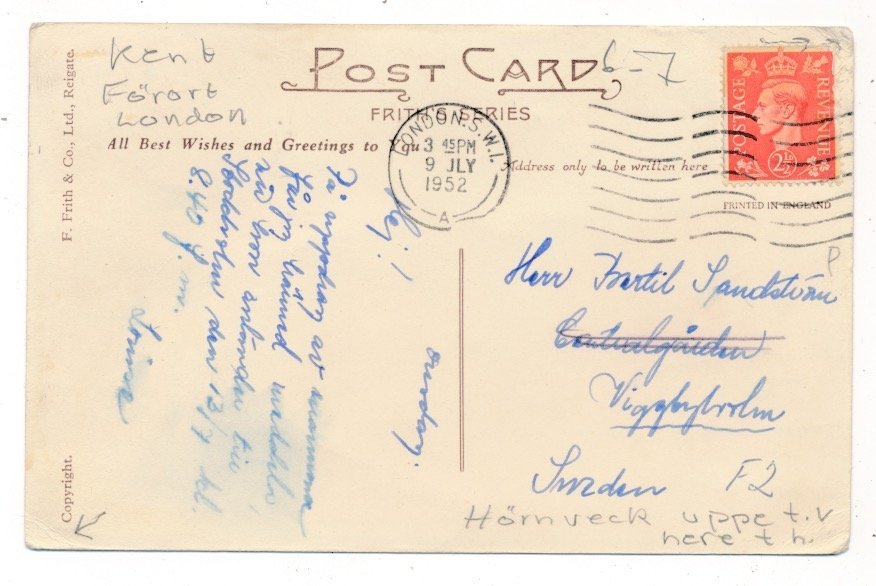 Kent
Förort
London
POST CARD
6-7
FRITH'S SERIES
All Best Wishes and Greetings to You
Address only to be written here
LONDON.S.W.1.
3 45PM
9 JLY
1952
A
POSTAGE REVENUE
2½D
PRINTED IN ENGLAND
F. Frith & Co., Ltd., Reigate.
Copyright.
onsdag.
Hej!
På uppdrag av mamma
får jag härmed meddela
när hon anländer till
Stockholm den 13/7 kl.
8.40 f.m.
P
Herr Bertil Sandström
Centralgården
Viggbyholm
Sweden F2
Hörnveck uppe t.v
nere t h.